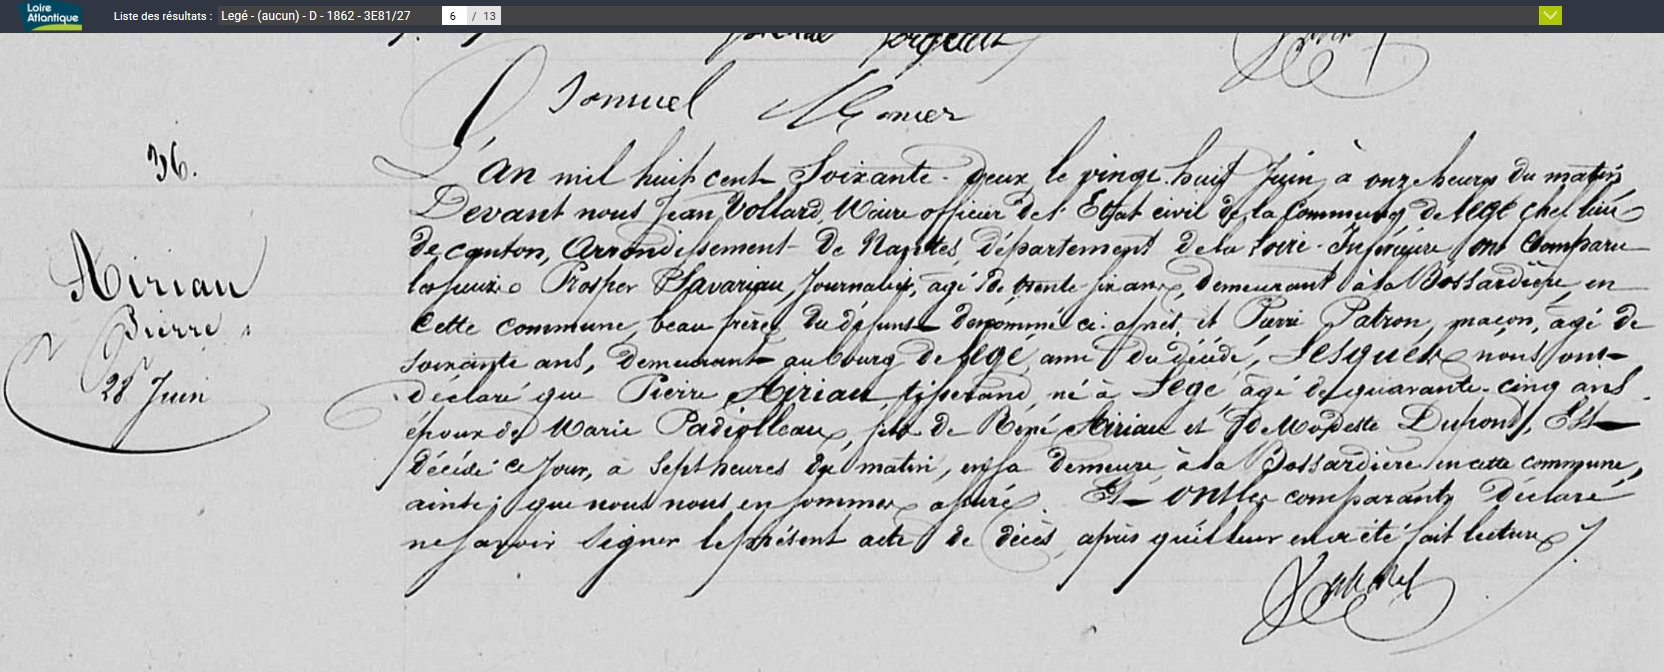 Loire
Atlantique
Liste des résultats : Legé - (aucun) - D - 1862 - 3E81/27 6 / 13
36.
L'an mil huit cent Soixante-deux, le vingt huit Juin, à onze heures du matin
Devant nous Jean Vollard, Maire officier de l'Etat civil de la Commune de Legé chef lieu
de canton, Arrondissement de Nantes, département de la Loire-Inférieure, ont Comparu
les sieurs Prosper Savariau, Journalier, âgé de trente-six ans, demeurant à la Bossardière, en
Cette commune, beau frère, du défunt dénommé ci-après, et Pierre Patron, maçon, âgé de
soixante ans, Demeurant au bourg de Legé, ami du décédé, Lesquels nous ont
déclaré que Pierre Airiau, tisserand, né à Legé, âgé de quarante-cinq ans,
époux de Marie Padiolleau, fils de Réné Airiau et de Modeste Dupond, Est
décédé ce Jour, à Sept heures du matin, en sa demeure à la Bossardière en cette commune,
ainsi que nous nous en sommes assuré. Et ont les comparants Déclaré
ne savoir Signer le présent acte de décès, après qu'il leur en a été fait lecture
Airiau
Pierre
28 Juin